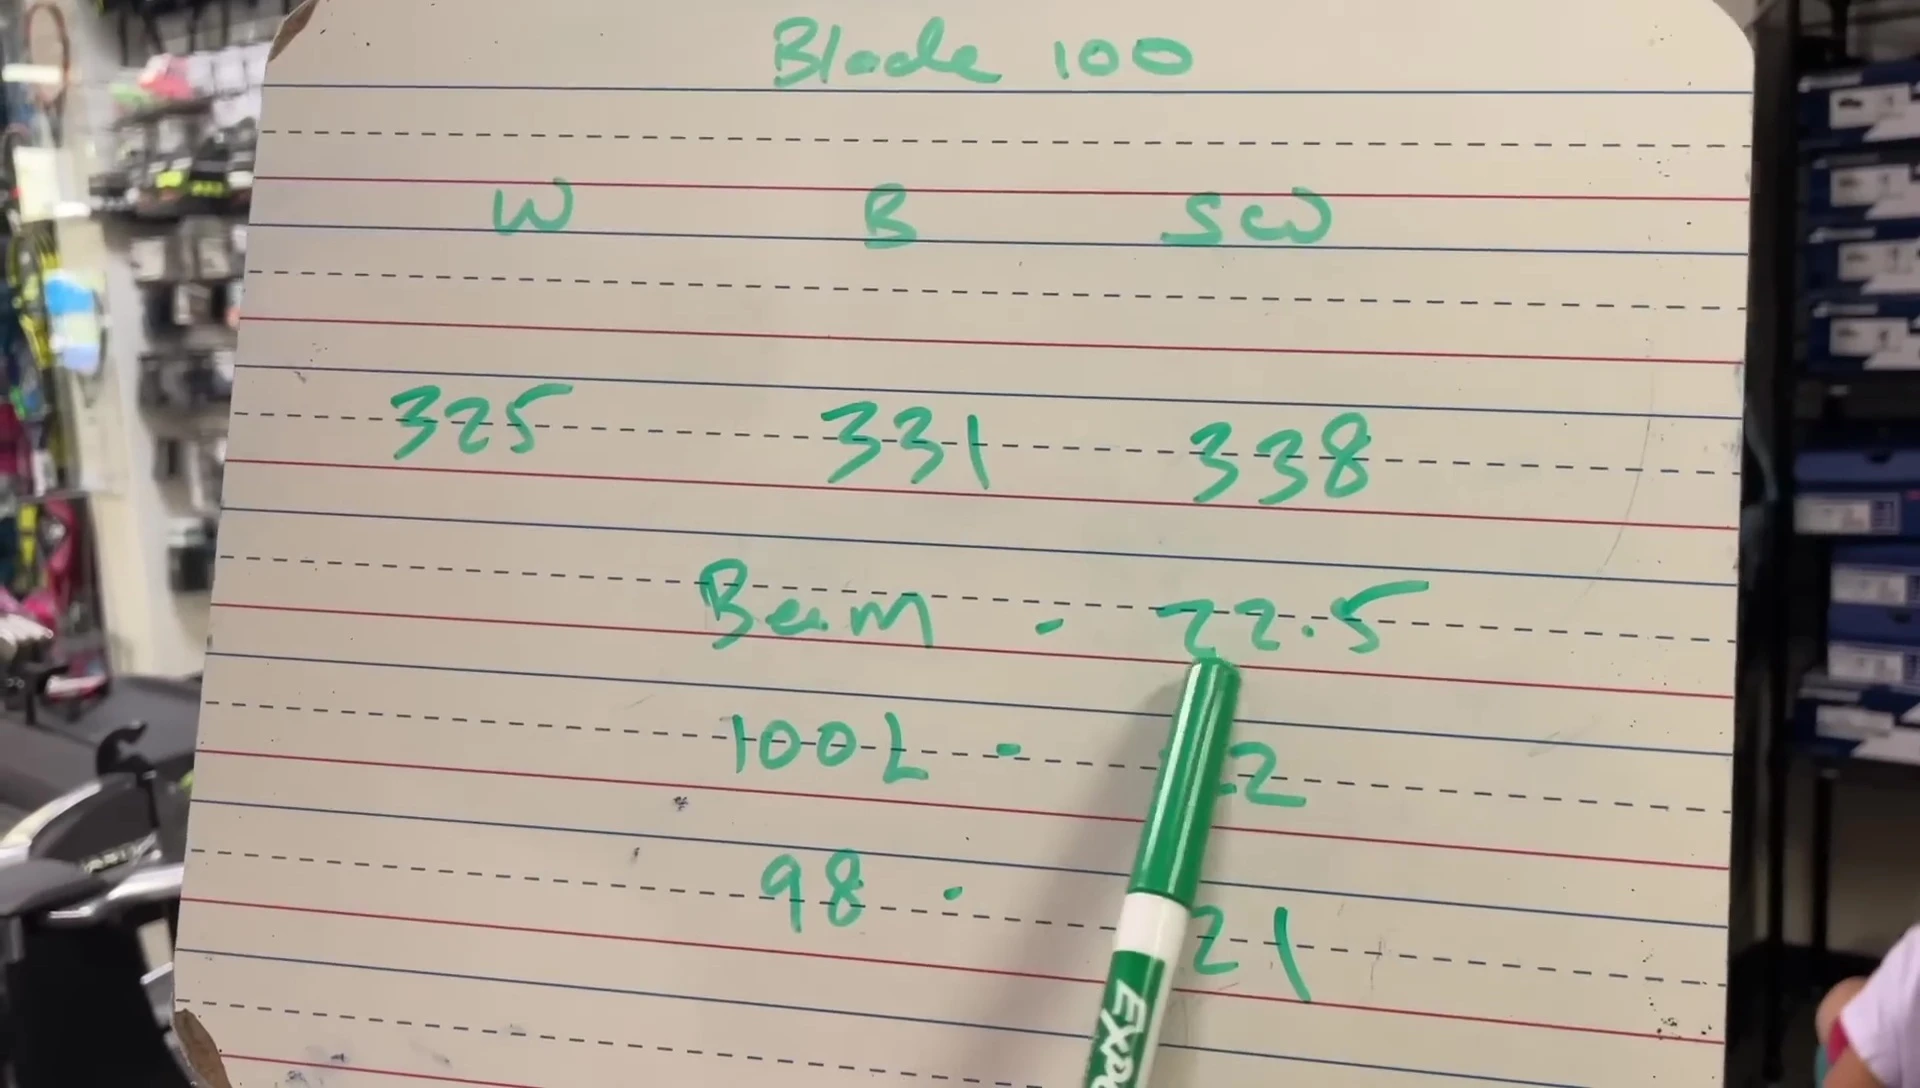 Blade 100
W B SW
325 331 338
Beam - 22.5
100L - 2
98 - 21
EXPO